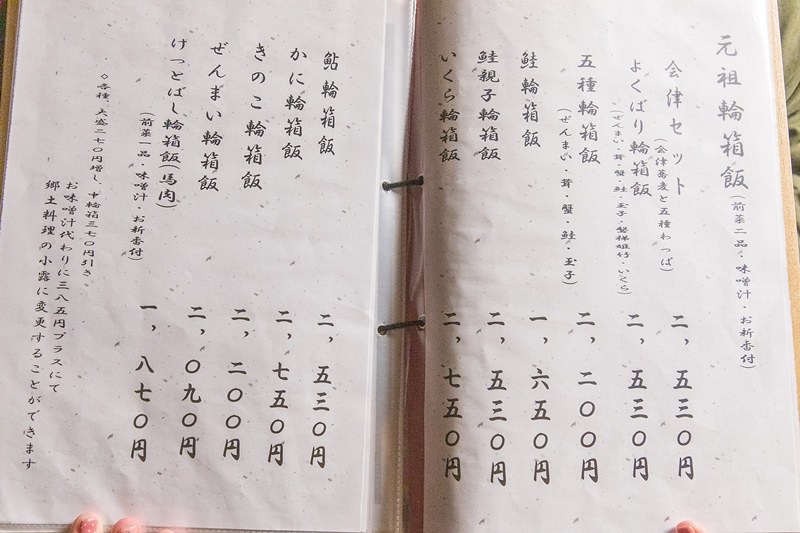 元祖輪箱飯(前菜二品・味噌汁・お新香付)
会津セット 二、五三〇円
(会津蕎麦と五種わっぱ)
よくばり輪箱飯 二、五三〇円
(ぜんまい・茸・蟹・鮭・玉子・磐梯雄竹・いくら)
五種輪箱飯 二、二〇〇円
(ぜんまい・茸・蟹・鮭・玉子)
鮭輪箱飯 一、六五〇円
鮭親子輪箱飯 二、五三〇円
いくら輪箱飯 二、七五〇円
鮎輪箱飯 二、五三〇円
かに輪箱飯 二、七五〇円
きのこ輪箱飯 二、二〇〇円
ぜんまい輪箱飯 二、〇九〇円
けっとばし輪箱飯(馬肉) 一、八七〇円
(前菜一品・味噌汁・お新香付)
◇各種、大盛二七〇円増し、中輪箱三七〇円引き
お味噌汁代わりに三八五円プラスにて
郷土料理の小露に変更することができます